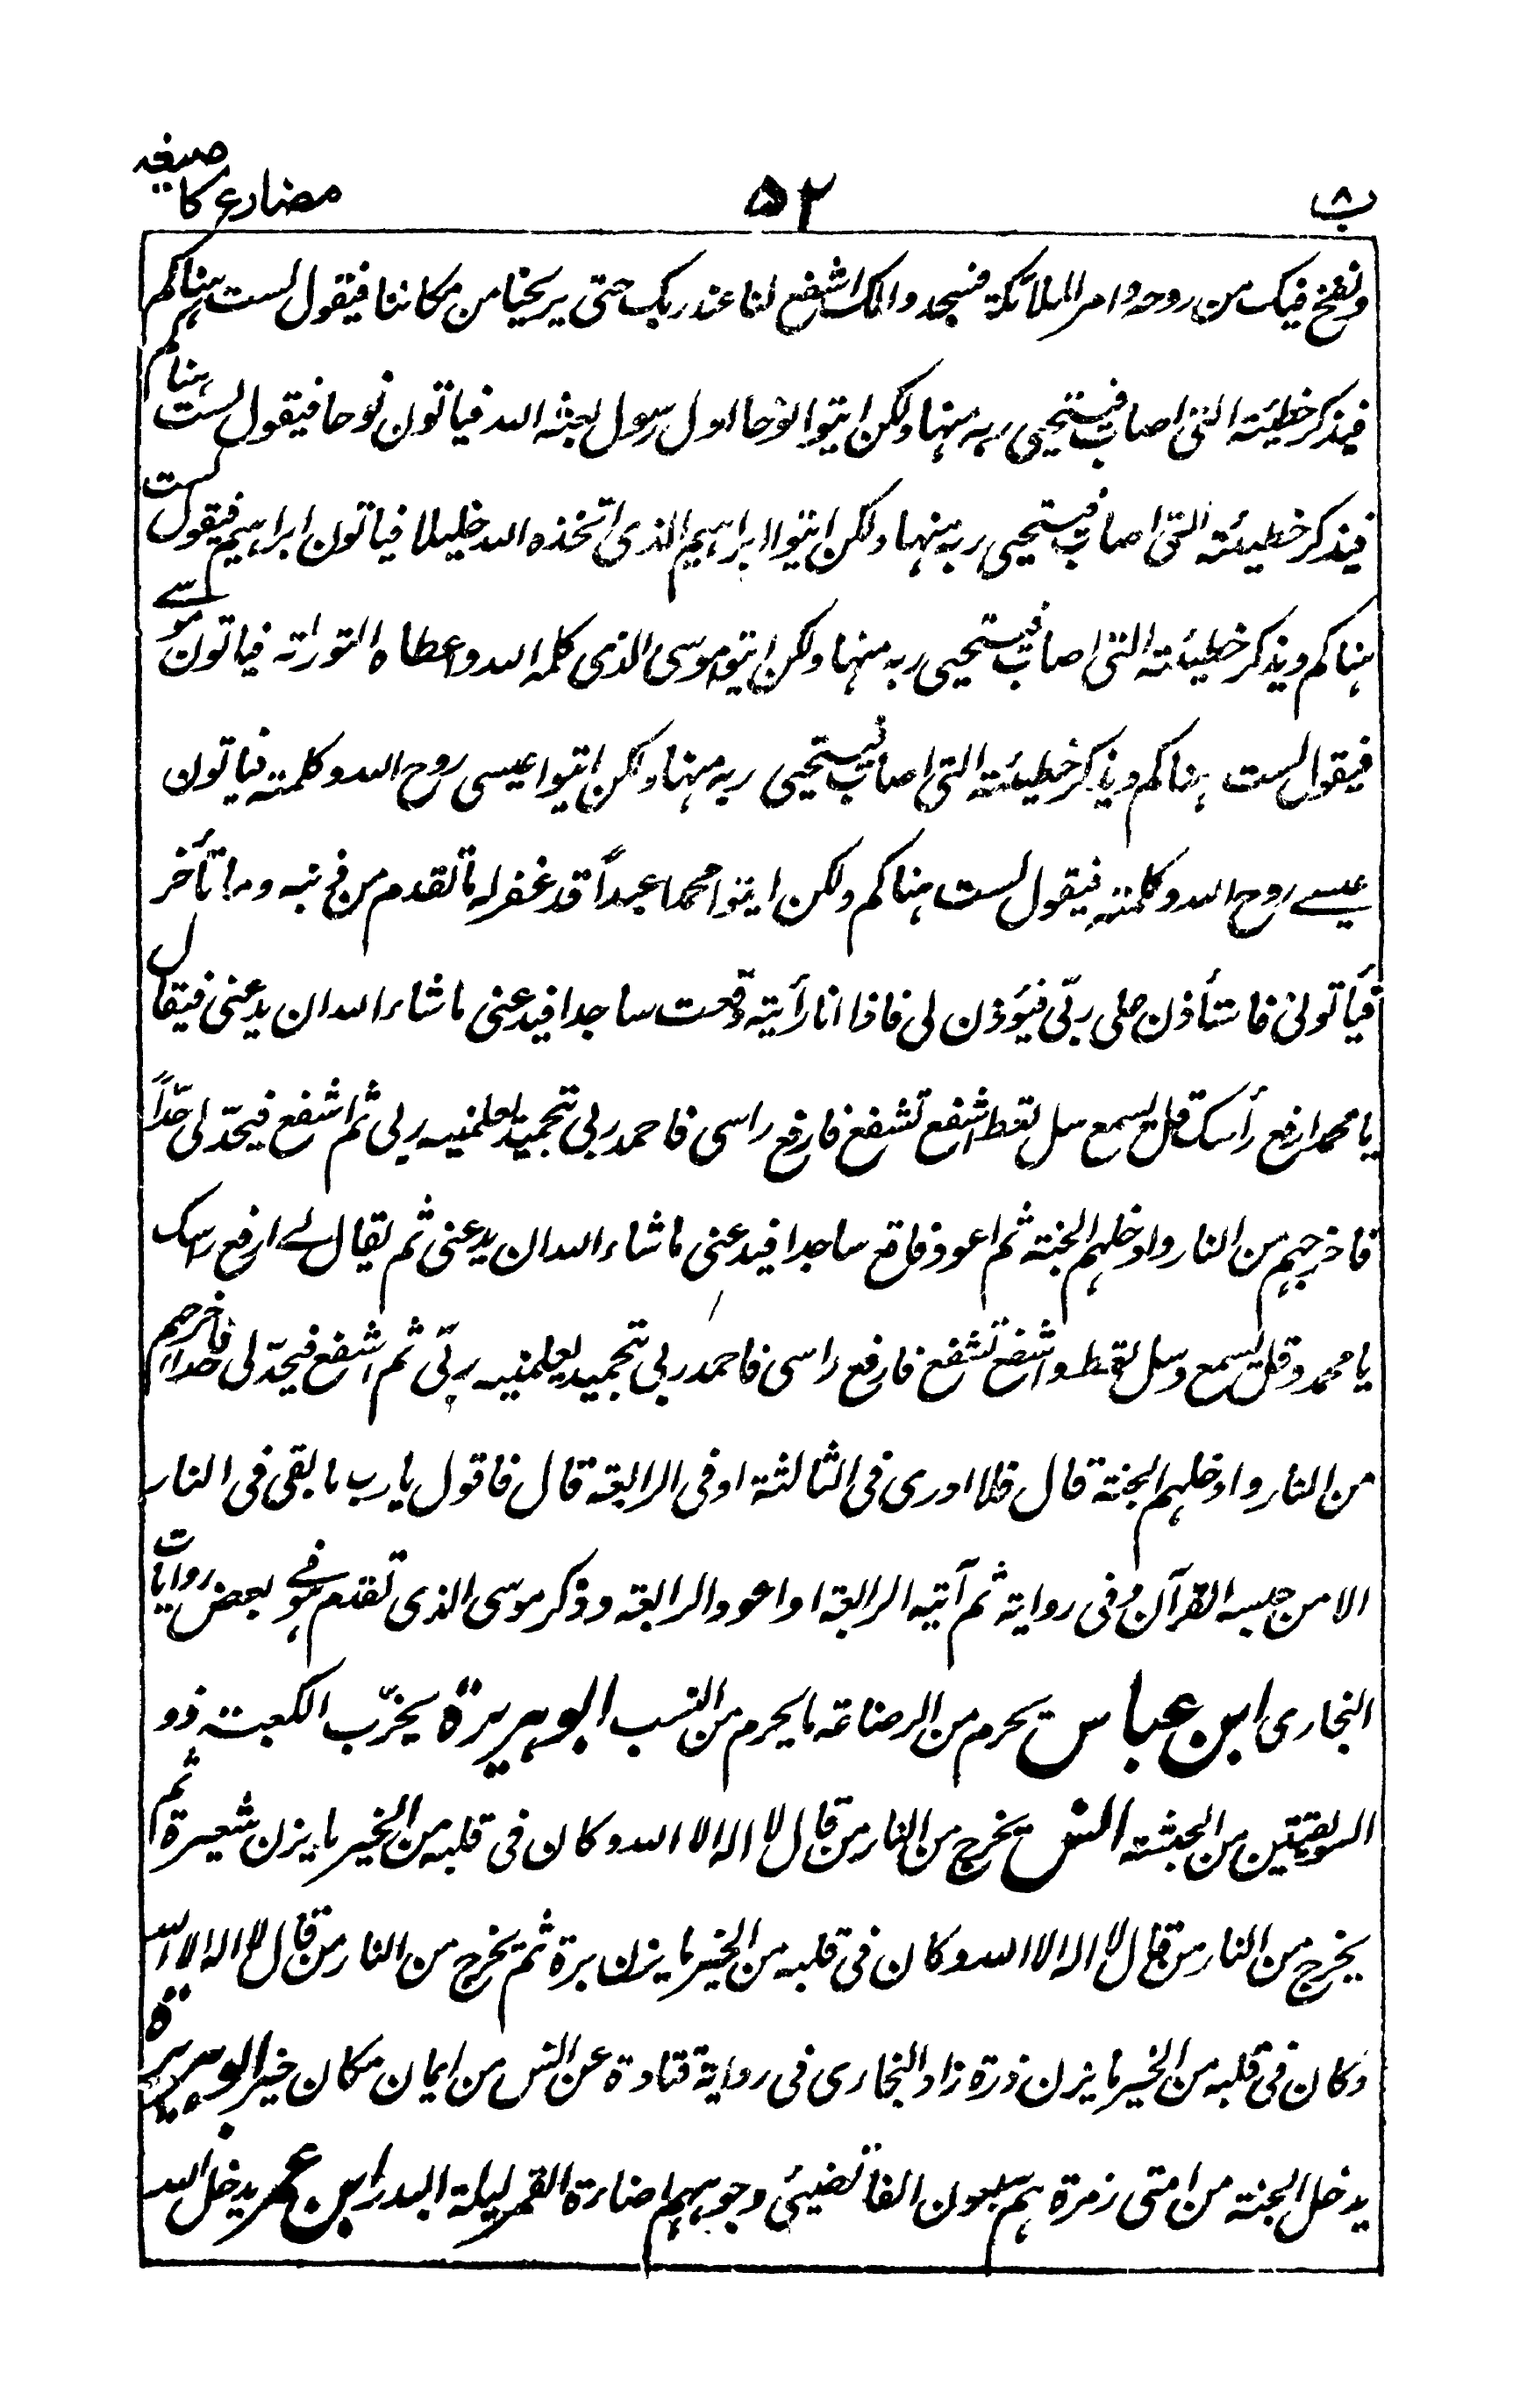 ب۸ ۵۲ مضارع کا صیغہ
ونفخ فیک من روحہ وامر الملائکۃ فسجدوا لک اشفع لنا عند ربک حتی یریحنا من مکاننا فیقول لست ہناکم
فیذکر خطیئتہ التی اصاب فیستحیی ربہ منہا ولکن ایتوا نوحا اول رسول بعثہ اللہ فیاتون نوحا فیقول لست ہناکم
فیذکر خطیئتہ التی اصاب فیستحیی ربہ منہا ولکن ایتوا ابراہیم الذی اتخذہ اللہ خلیلا فیاتون ابراہیم فیقول لست
ہناکم ویذکر خطیئتہ التی اصاب فیستحیی ربہ منہا ولکن ایتوا موسی الذی کلمہ اللہ واعطاہ التوراتہ فیاتون موسے
فیقول لست ہناکم ویذکر خطیئتہ التی اصاب فیستحیی ربہ منہا ولکن ایتوا عیسی روح اللہ وکلمتہ فیاتون
عیسے روح اللہ وکلمتہ فیقول لست ہناکم ولکن ایتوا محمدا عبداً قد غفر لہ ما تقدم من ذنبہ وما تأخر
فیأتونی فاستأذن علی ربّی فیئوذن لی فاذا انا رأیتہ وقعت ساجدا فیدعنی ما شاء اللہ ان یدعنی فیقال
یا محمد ارفع رأسک قل یسمع سل تعط اشفع تشفع فارفع راسی فاحمد ربی بتحمید یعلمنیہ ربی ثم اشفع فیحدّ لی حدّاً
فاخرجہم من النار وادخلہم الجنتہ ثم اعود فاقع ساجدا فیدعنی ما شاء اللہ ان یدعنی ثم یقال لے ارفع راسک
یا محمد وقل یسمع وسل تعط واشفع تشفع فارفع راسی فاحمد ربی بتحمید یعلمنیہ ربّی ثم اشفع فیحدّ لی حدا فاخرجہم
من النار وادخلہم الجنتۃ قال فلا ادری فی الثالثۃ او فی الرابعۃ قال فاقول یا رب ما بقی فی النار
الا من حبسہ القرآن وفی روایتہ ثم آتیہ الرابعۃ او اعود الرابعۃ وذکر موسی الذی تقدم ہو فے بعض روایات
البخاری ابن عباس یحرم من الرضاعۃ ما یحرم من النسب ابو ہریرۃ یخرّب الکعبتہ ذو
السویقتین من الحبشتہ انس یخرج من النار من قال لا الہ الا اللہ وکان فی قلبہ من الخیر ما یزن شعیرۃ ثم
یخرج من النار من قال لا الہ الا اللہ وکان فی قلبہ من الخیر ما یزن برۃ ثم یخرج من النار من قال لا الہ الا اللہ
وکان فی قلبہ من الخیر ما یزن ذرۃ زاد البخاری فی روایۃ قتادۃ عن انس من ایمان مکان خیر ابو ہریرۃ
یدخل الجنتہ من امتی زمرۃ ہم سبعون الفا تضیئی وجوہہم اضاءۃ القمر لیلۃ البدر ابن عمر یدخل اللہ